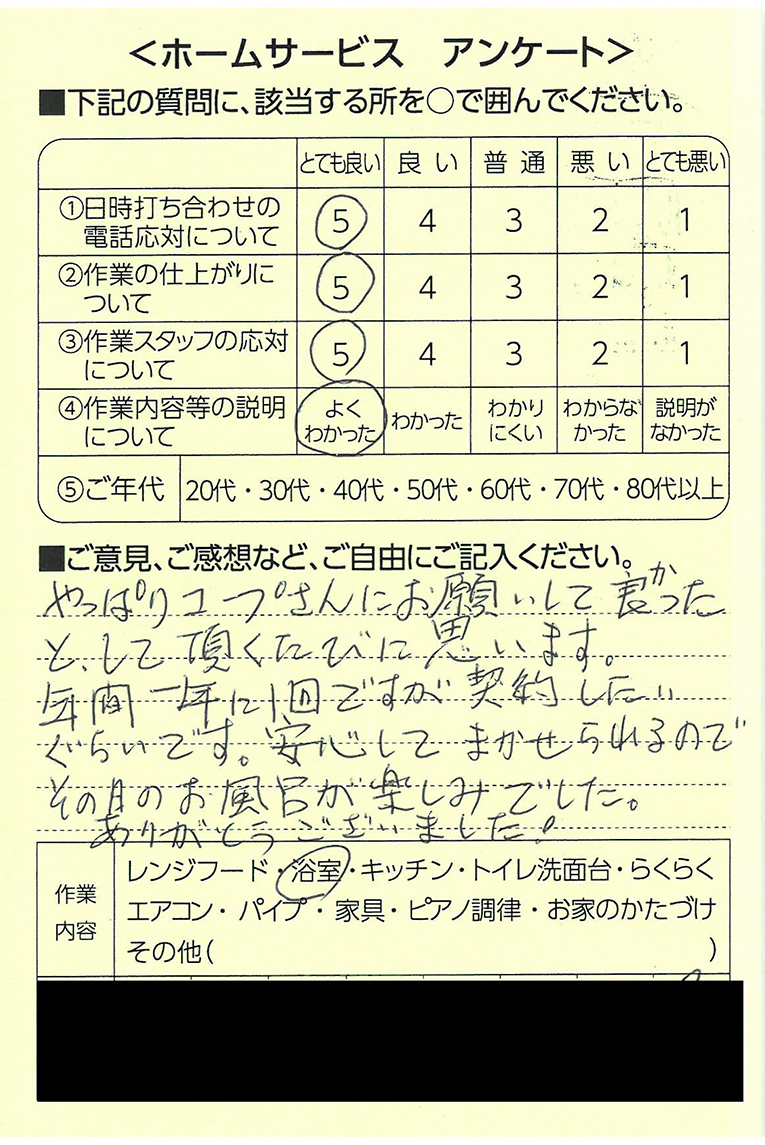 <ホームサービス　アンケート>
■下記の質問に、該当する所を○で囲んでください。
とても良い　良い　普通　悪い　とても悪い
①日時打ち合わせの
電話応対について　5　4　3　2　1
②作業の仕上がりに
ついて　5　4　3　2　1
③作業スタッフの応対
について　5　4　3　2　1
④作業内容等の説明
について　よく
わかった　わかった　わかり
にくい　わからな
かった　説明が
なかった
⑤ご年代　20代・30代・40代・50代・60代・70代・80代以上
■ご意見、ご感想など、ご自由にご記入ください。
やっぱりコープさんにお願いして良かった
と、して頂くたびに思います。
年間一年に1回ですが契約したい
ぐらいです。安心してまかせられるので
その日のお風呂が楽しみでした。
ありがとうございました！
作業
内容
レンジフード・浴室・キッチン・トイレ洗面台・らくらく
エアコン・パイプ・家具・ピアノ調律・お家のかたづけ
その他(　)